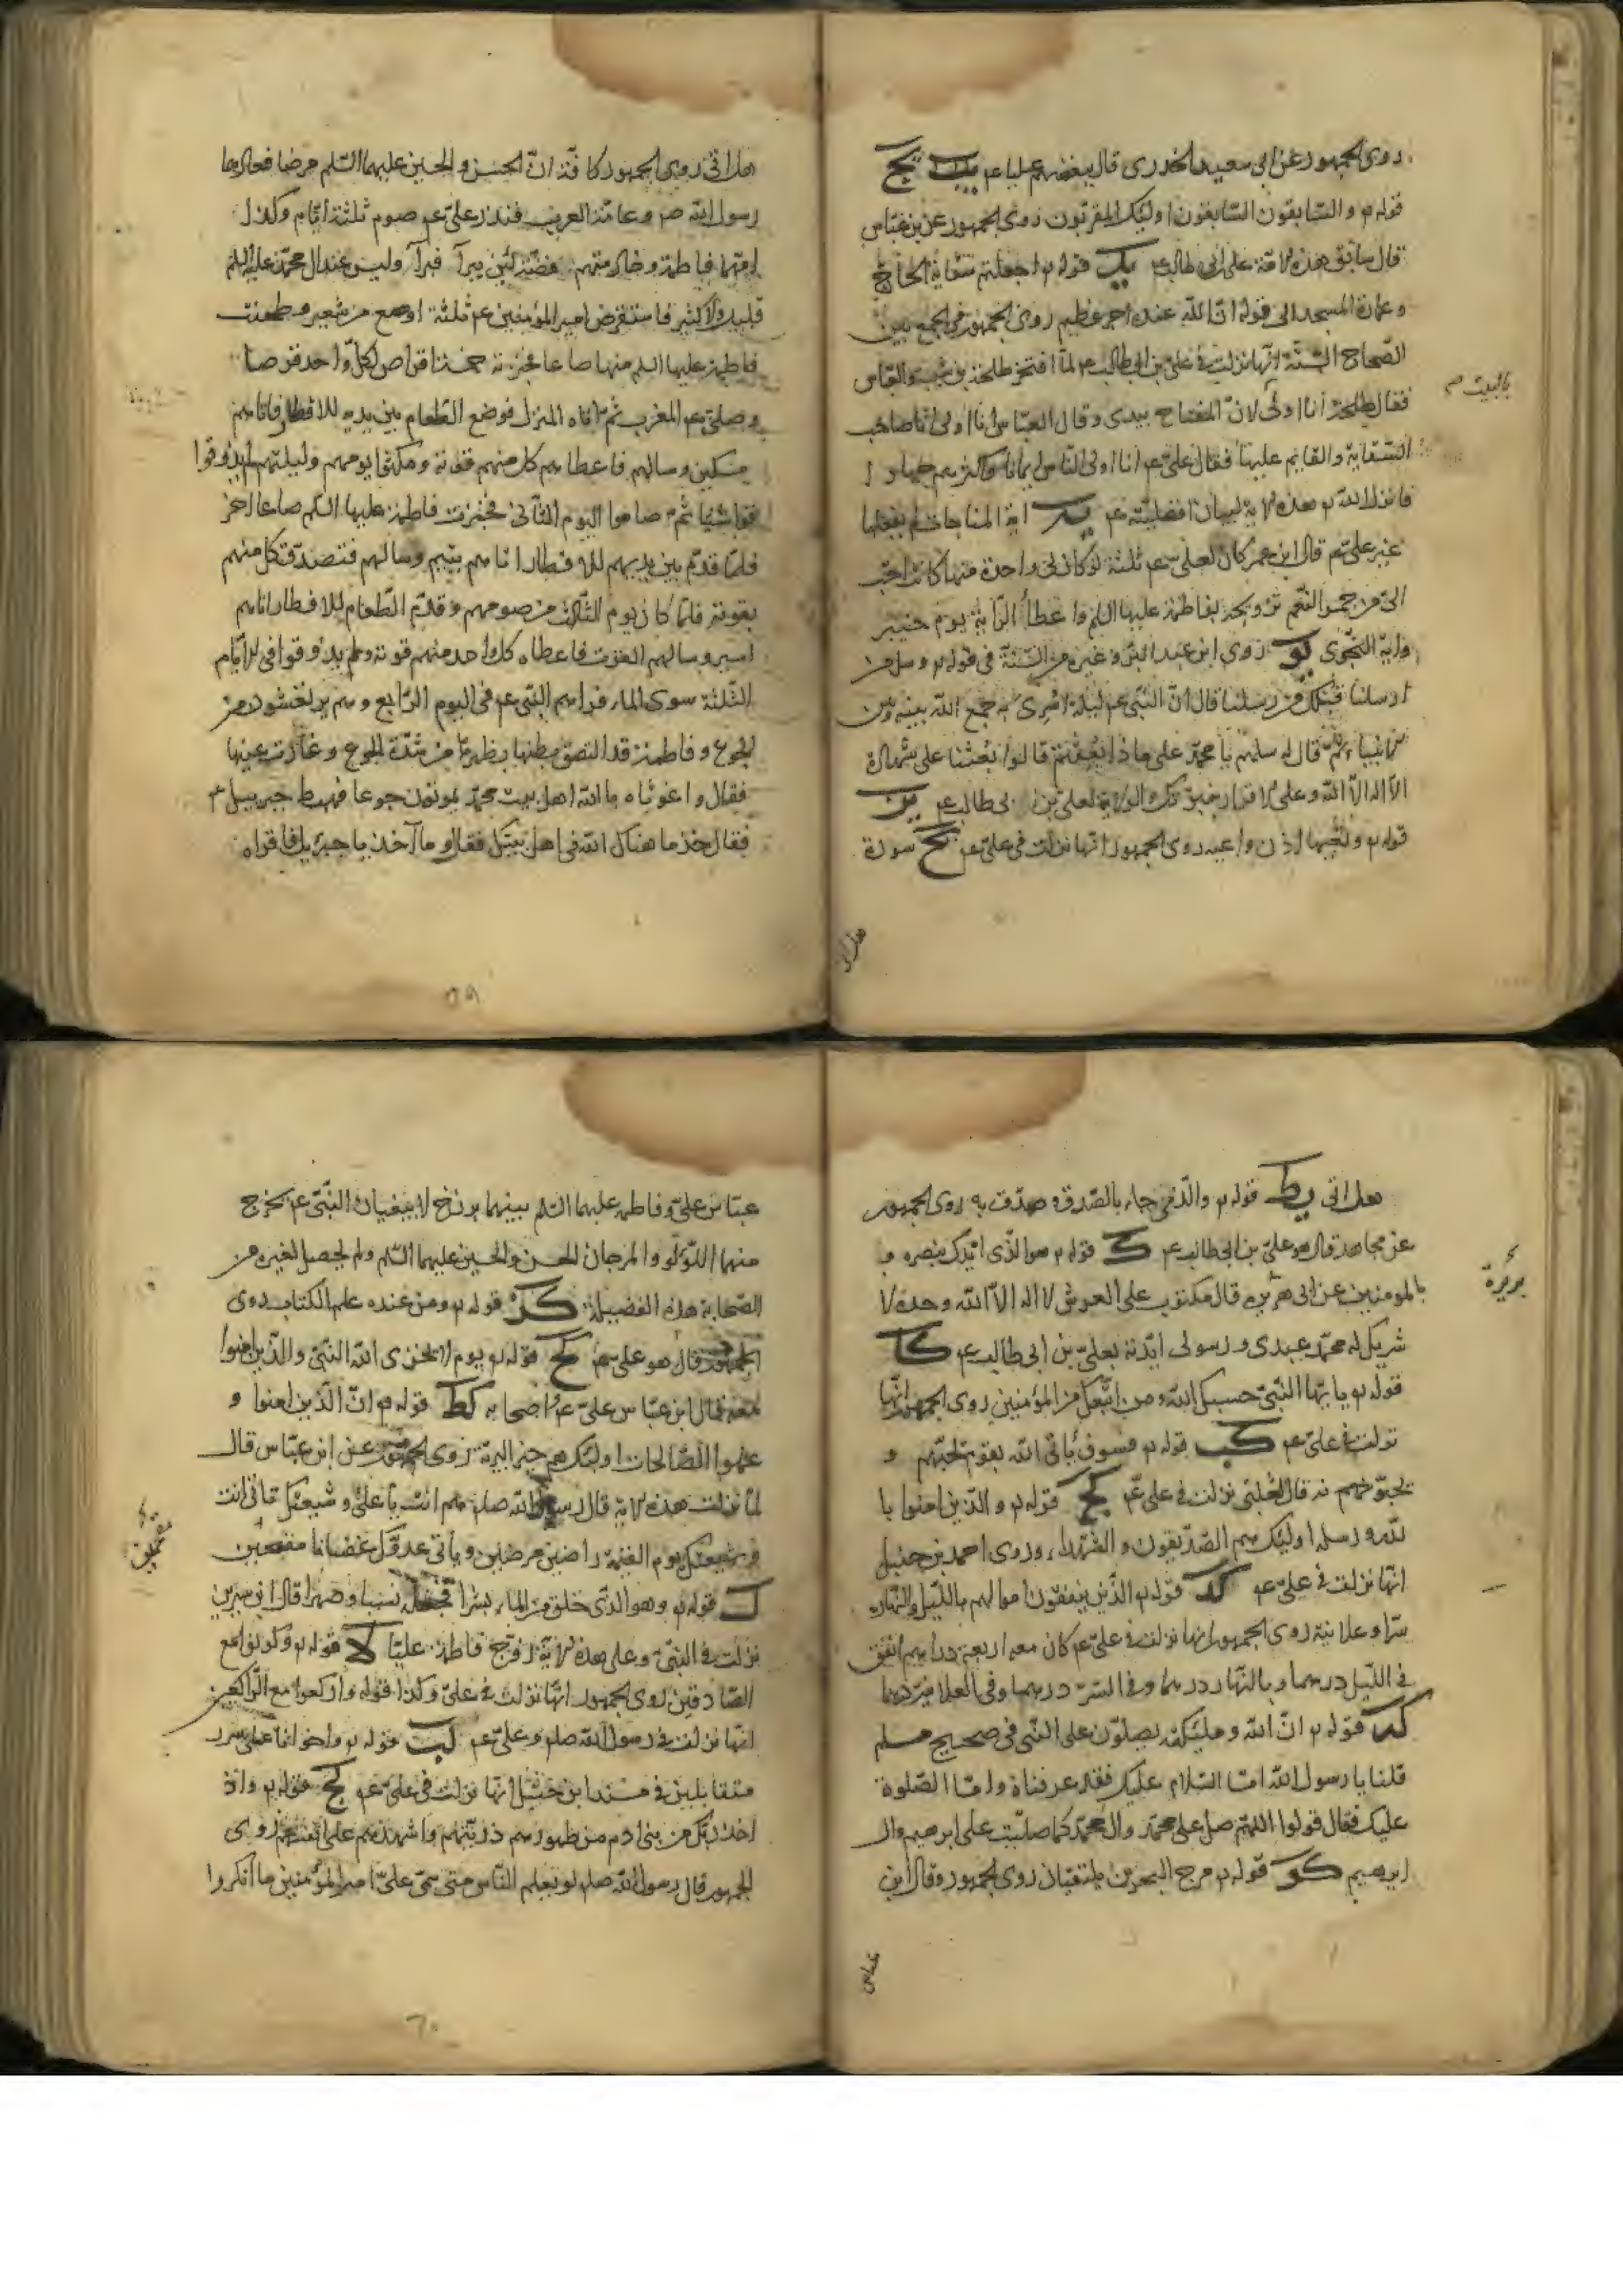 روى الجمهور عن ابى سعيد الخدرى قال ببغضهم عليا عم يب يج
قوله تع والسّابقون السّابقون اولئك المقربون روى الجمهور عن بن عبّاس
قال سابق هذه الامّة على بن ابى طالب عم يد قوله تع اجعلتم سقاية الحاج
وعمارة المسجد الى قوله انّ اللّه عنده اجر عظيم روى الجمهور فى الجمع بين
الصّحاح السّتّة انّها نزلت فى علىّ بن ابى طالب عم لمّا افتخر طلحة بن شيبه والعبّاس
فقال طلحة انا اولى لانّ المفتاح بيدى وقال العبّاس انا اولى انا صاحب
السّقاية والقايم عليها فقال علىّ عم انا اولى النّاس ايمانا واكثرهم جهادا
فانزل اللّه تع هذه الاية لبيان افضليّته عم يه اية المناجات لم يفعلها
غير علىّ عم قال ابن عمر كان لعلىّ عم ثلثة لو كان لى واحدة منها كانت احبّ
الىّ من حمر النّعم تزويجه بفاطمة عليها السلم واعطاء الرّاية يوم خيبر
واية النّجوى يو روى ابن عبد البرّ وغيره من السّنّة فى قوله تع وسل من
ارسلنا قبلك من رسلنا قال انّ النّبى عم ليلة اسرى به جمع اللّه بينه وبين
الانبياء ثمّ قال له سلهم يا محمّد على ماذا بعثتم قالوا بعثنا على شهادة
الّا اله الّا اللّه وعلى الاقرار بنبوّتك والولاية لعلىّ بن ابى طالب عم يز
قوله تع وتعيها اذن واعيه روى الجمهور انّها نزلت فى علىّ عم يح سورة
هل اتى
بالبيت صح
هل اتى روى الجمهور كافّة انّ الحسن والحسين عليهما السّلم مرضا فعادهما
رسول اللّه ص وعامّة العرب فنذر علىّ عم صوم ثلثة ايّام وكذا
امّهما فاطمة وخادمتهم فضّة لئن برآ فبرآ وليس عند ال محمّد عليه السلم
قليل ولا كثير فاستقرض امير المؤمنين عم ثلثة اوصع من شعير وطحنت
فاطمة عليها السلم منها صاعا فخبزته خمسة اقراص لكلّ واحد قرصا
وصلّى عم المغرب ثمّ اتاه المنزل فوضع الطّعام بين يديه للافطار فاتاهم
مسكين وسالهم فاعطاه كلّ منهم قوته ومكثوا يومهم وليلتهم لم يذوقوا
شيئا ثمّ صاموا اليوم الثّانى فخبزت فاطمة عليها السّلم صاعا اخر
فلمّا قدّم بين يديهم للافطار اتاهم يتيم وسالهم فتصدّق كلّ منهم
بقوته فلمّا كان يوم الثّالث من صومهم وقدّم الطّعام للافطار اتاهم
اسير وسالهم القوت فاعطاه كلّ واحد منهم قوته ولم يذوقوا فى الايّام
الثّلثة سوى الماء فراهم النّبى عم فى اليوم الرّابع وهم يرتعشون من
الجوع وفاطمة قد التصق بطنها بظهرها من شدّة الجوع وغارت عينها
فقال واغوثاه باللّه اهل بيت محمّد يموتون جوعا فهبط جبرييل عم
فقال خذ ما هنّاك اللّه فى اهل بيتك فقال وما آخذ يا جبرئيل فاقراه
٥٩
هل اتى يط قوله تع والّذى جاء بالصّدق وصدّق به روى الجمهور
عن مجاهد قال هو علىّ بن ابى طالب عم ك قوله تع هو الّذى ايّدك بنصره و
بالمومنين عن ابى هريرة قال مكتوب على العرش لا اله الّا اللّه وحده لا
شريك له محمّد عبدى ورسولى ايّدته بعلىّ بن ابى طالب عم كا
قوله تع يا ايّها النّبىّ حسبك اللّه ومن اتّبعك من المؤمنين روى الجمهور انّها
نزلت فى علىّ عم كب قوله تع فسوف يأتى اللّه بقوم يحبّهم و
يحبّونه قال الثعلبى نزلت فى علىّ عم كج قوله تع والّذين امنوا با
للّه ورسله اولئك هم الصّدّيقون والشّهداء روى احمد بن حنبل
انّها نزلت فى علىّ عم كد قوله تع الّذين ينفقون اموالهم باللّيل والنّهار
سرّا وعلانية روى الجمهور انها نزلت فى علىّ عم كان معه اربعة دراهم انفق
فى اللّيل درهما وبالنّهار درهما وفى السّرّ درهما وفى العلانية درهما
كه قوله تع انّ اللّه وملئكته يصلّون على النّبى فى صحيح مسلم
قلنا يا رسول اللّه امّا السّلام عليك فقد عرفناه وامّا الصّلوة
عليك فقال قولوا اللّهمّ صل على محمّد وال محمّد كما صلّيت على ابرهيم وال
ابرهيم كو قوله تع مرج البحرين يلتقيان روى الجمهور وقال ابن
عبّاس
عبّاس علىّ وفاطمة عليهما السّلم بينهما برزخ لا يبغيان النّبىّ عم يخرج
منهما اللّؤلؤ والمرجان الحسن والحسين عليهما السّلم ولم يحصل لغيره من
الصّحابة هذه الفضيلة كز قوله تع ومن عنده علم الكتاب روى
الجمهور قال هو علىّ عم كح قوله تع يوم لا يخزى اللّه النّبىّ والّذين امنوا
معه قال ابن عبّاس علىّ عم واصحابه كط قوله تع انّ الّذين امنوا و
عملوا الصّالحات اولئك هم خير البريّة روى الجمهور عن ابن عبّاس قال
لمّا نزلت هذه الاية قال رسول اللّه صلم هم انت يا علىّ وشيعتك تاتى انت
وشيعتك يوم القيمة راضين مرضيّين ويأتى عدوّك غضبانا مقمحين
ل قوله تع وهو الّذى خلق من الماء بشرا فجعله نسبا وصهرا قال ابن سيرين
نزلت فى النّبىّ وعلى هذه الاية زوّج فاطمة عليّا لا قوله تع وكونوا مع
الصّادقين روى الجمهور انّها نزلت فى علىّ وكذا قوله واركعوا مع الرّاكعين
انّها نزلت فى رسول اللّه صلم وعلىّ عم لب قوله تع واخوانا على سرر
متقابلين فى مسند ابن حنبل انّها نزلت فى علىّ عم لج قوله تع واذ
اخذ ربّك من بنى ادم من ظهورهم ذريّتهم واشهدهم على انفسهم روى
الجمهور قال رسول اللّه صلم لو يعلم النّاس متى سمّى علىّ امير المؤمنين ما انكروا
٦٠